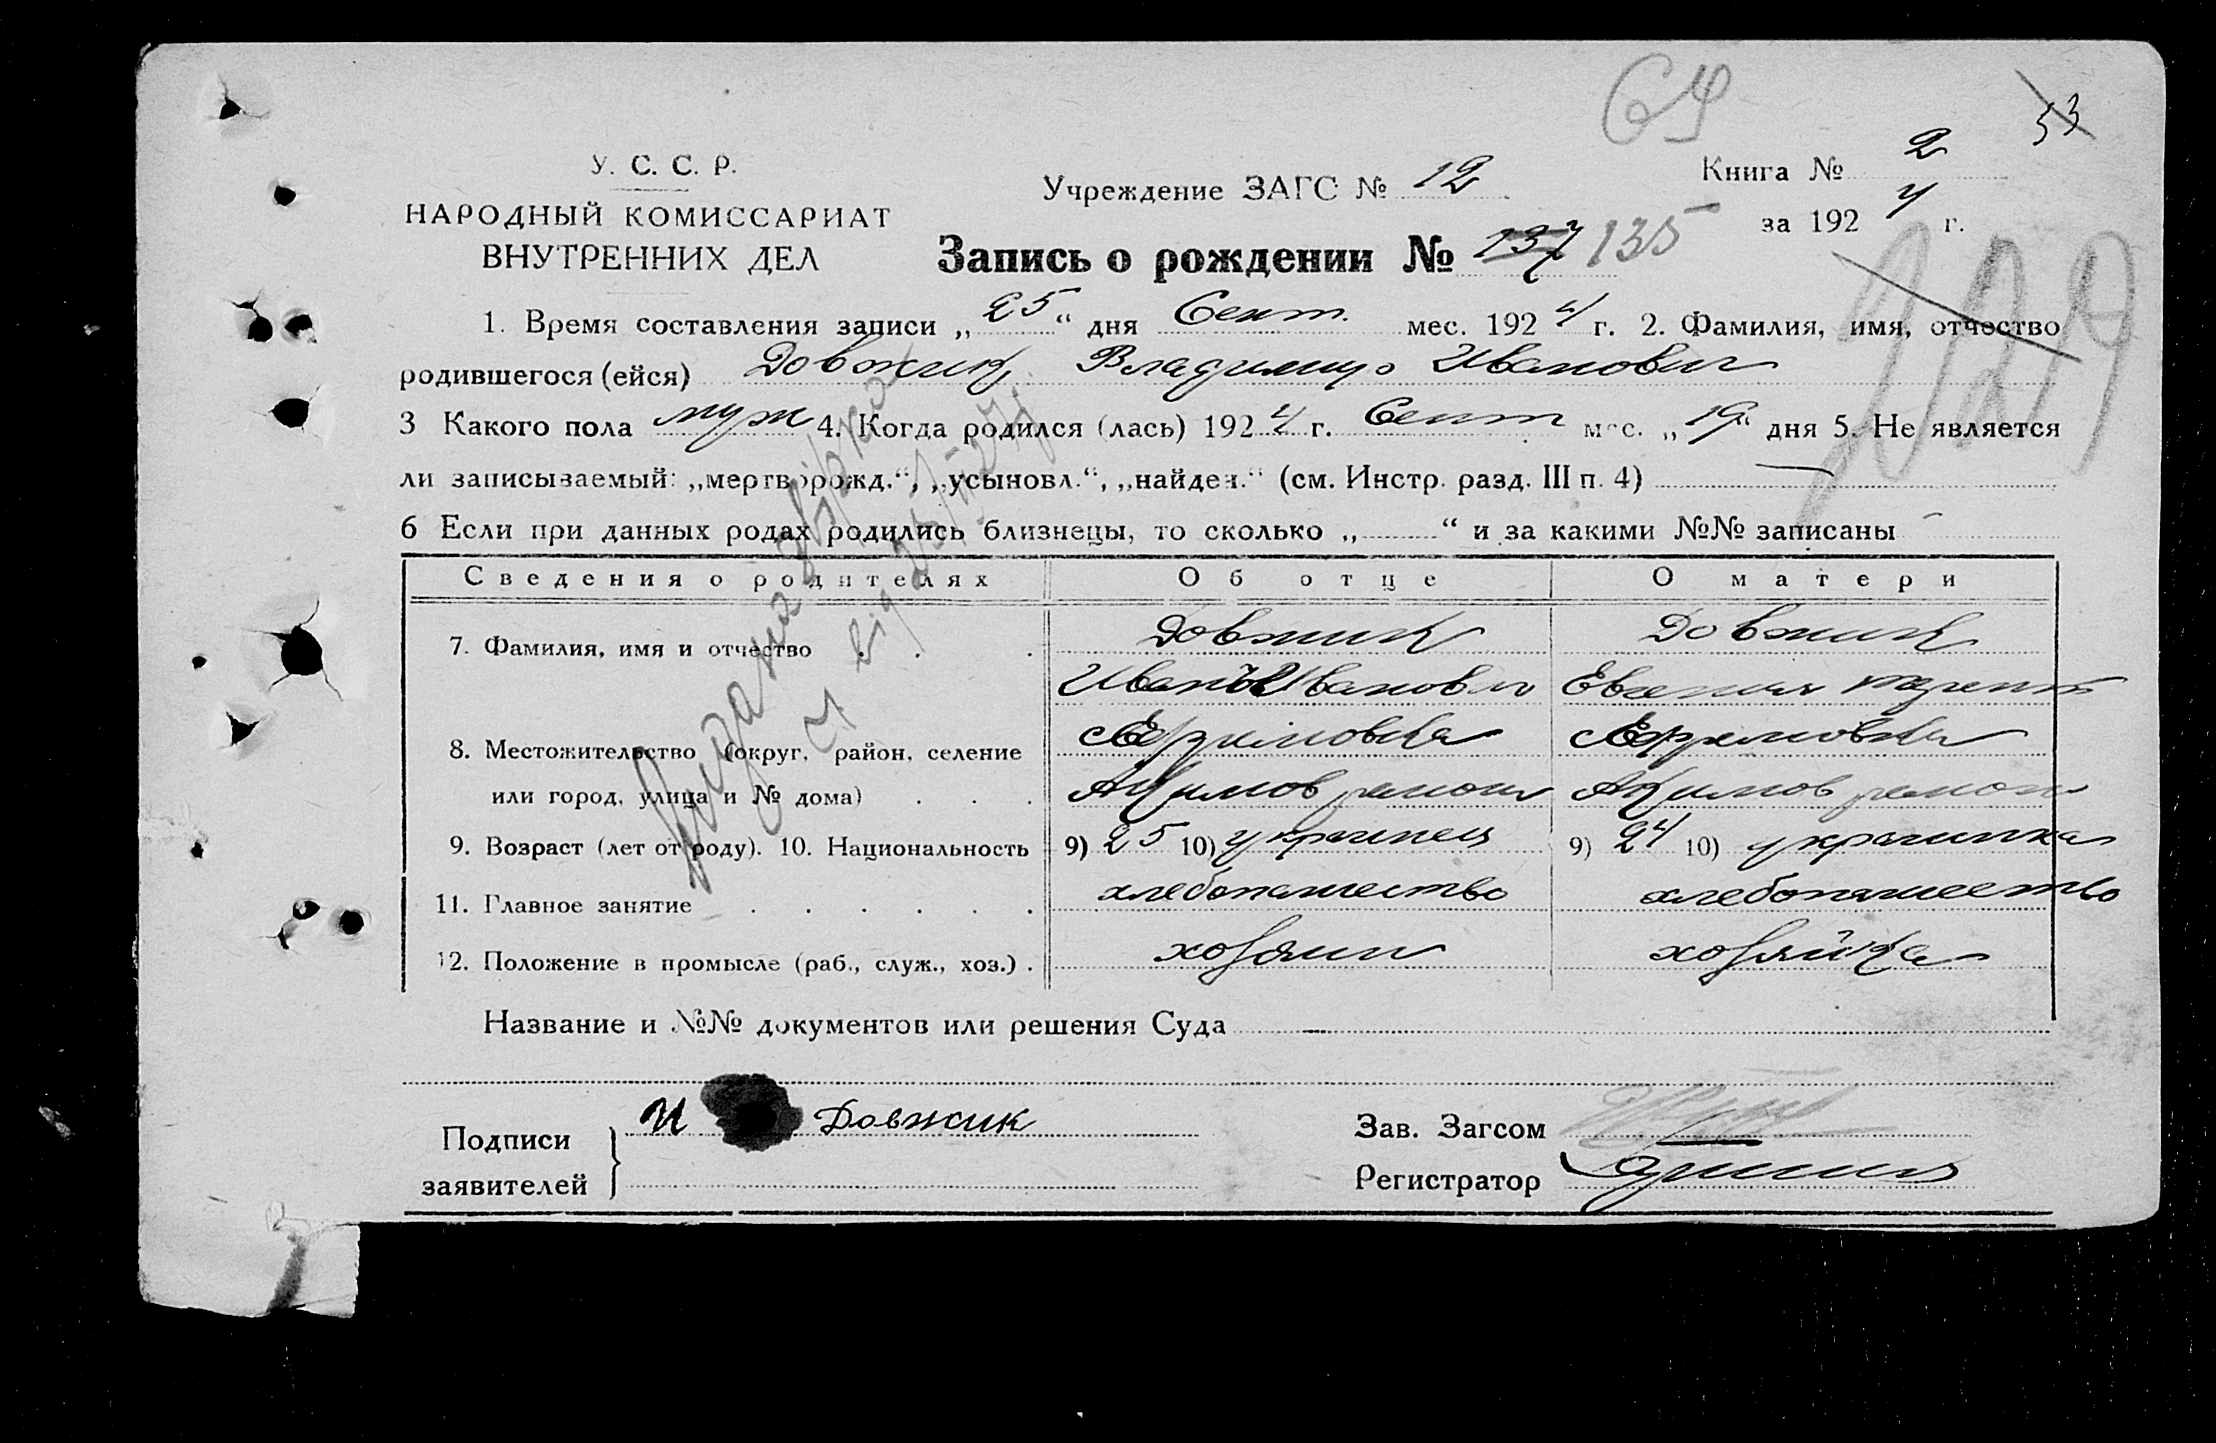 64
53
У. С. С. Р.
НАРОДНЫЙ КОМИССАРИАТ
ВНУТРЕННИХ ДЕЛ
Учреждение ЗАГС № 12
Книга № 2
за 1924 г.
Запись о рождении № 137 135
229
1. Время составления записи „25“ дня Сент. мес. 1924 г. 2. Фамилия, имя, отчество
родившегося (ейся) Довжик Владимир Иванович
3 Какого пола муж 4. Когда родился (лась) 1924 г. Сент мес. „19“ дня 5. Не является
ли записываемый: „мертворожд.“, „усыновл.“, „найден.“ (см. Инстр. разд. III п. 4) —
6 Если при данных родах родились близнецы, то сколько „ “ и за какими №№ записаны —
Сведения о родителях Об отце О матери
7. Фамилия, имя и отчество Довжик Довжик
Иван Иванович Евгения
8. Местожительство (округ, район, селение с Ефримовка с Ефремовка
или город, улица и № дома) Акимов района Акимов район
9. Возраст (лет от роду). 10. Национальность 9) 25 10) украинец 9) 24 10) украинка
11. Главное занятие хлебопашество хлебопашество
12. Положение в промысле (раб., служ., хоз.) хозяин хозяйка
Видана
Название и №№ документов или решения Суда —
Подписи
заявителей
И Довжик
Зав. Загсом
Регистратор